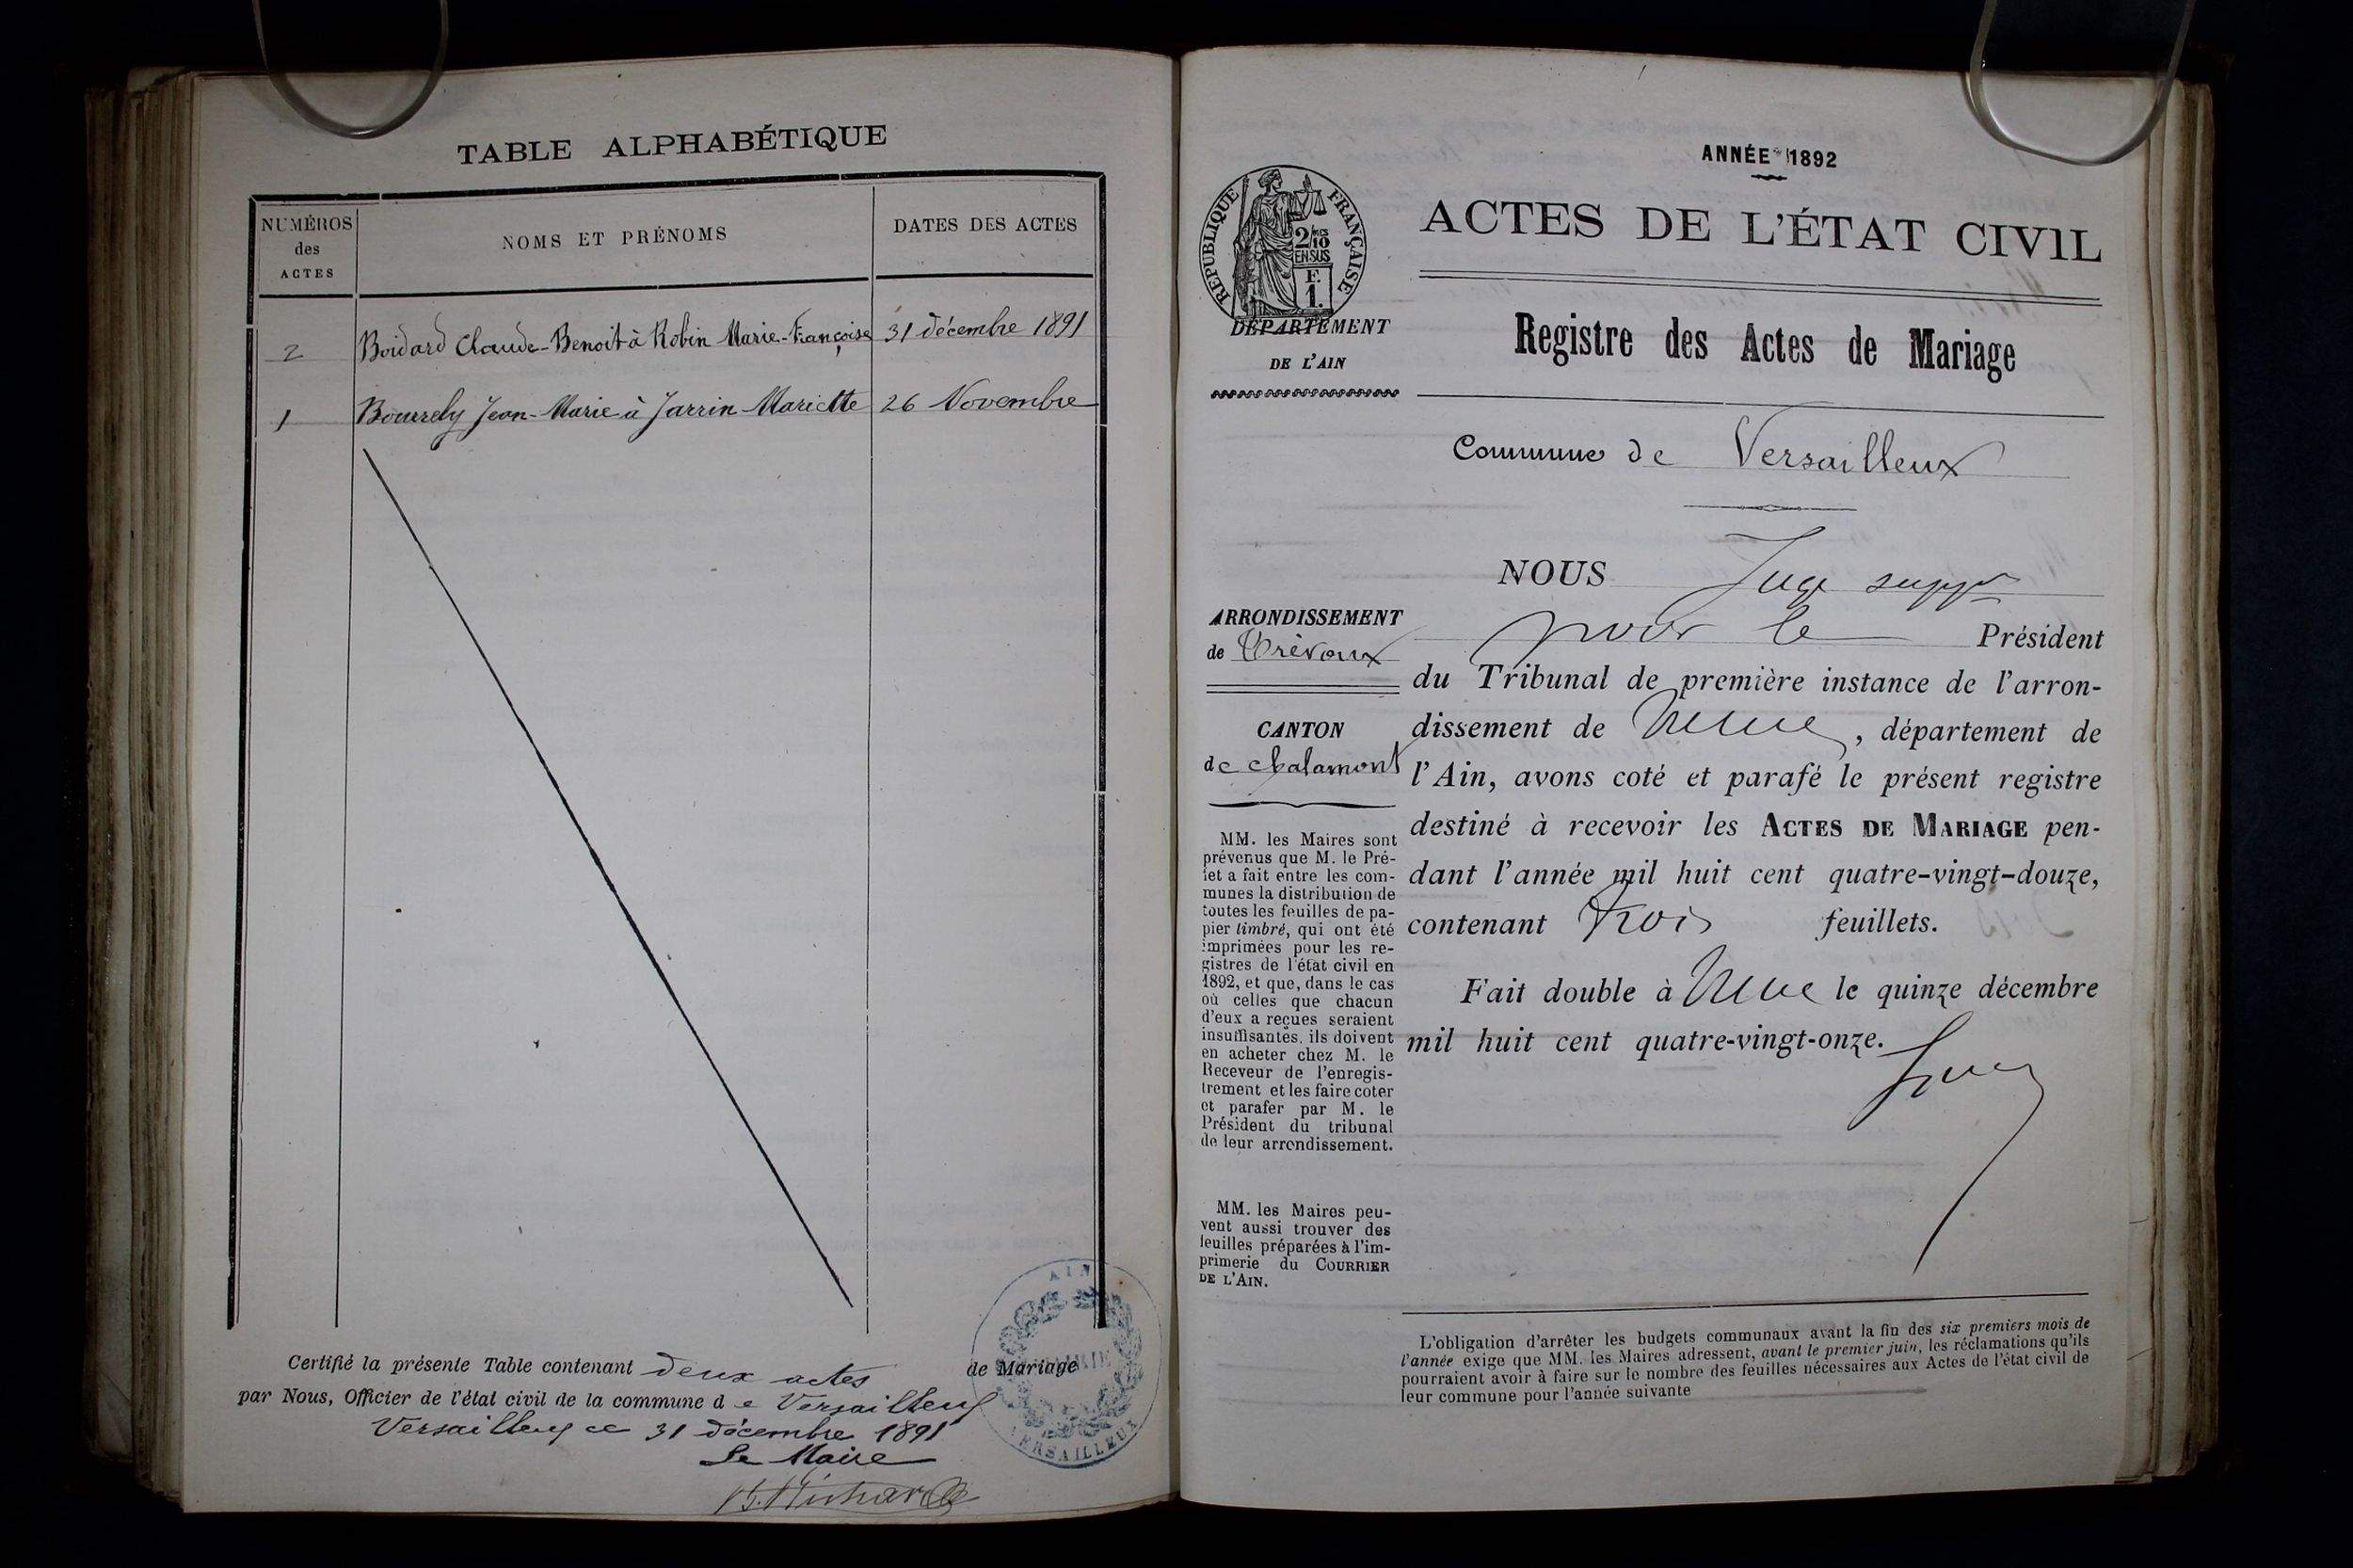 TABLE ALPHABÉTIQUE
NUMÉROS des ACTES
NOMS ET PRÉNOMS
DATES DES ACTES
2 Boidard Claude-Benoit à Robin Marie-Françoise 31 décembre 1891
1 Bourrely Jean-Marie à Jarrin Mariette 26 Novembre
Certifié la présente Table contenant deux actes de Mariage
par Nous, Officier de l'état civil de la commune d e Versailleux
Versailleux ce 31 décembre 1891
Le Maire
AIN
MAIRIE
VERSAILLEUX
ANNÉE 1892
RÉPUBLIQUE FRANÇAISE
2/10 EN SUS
F.
1.
ACTES DE L'ÉTAT CIVIL
DÉPARTEMENT
DE L'AIN
Registre des Actes de Mariage
Commune de Versailleux
ARRONDISSEMENT
de Trévoux
CANTON
de Chalamont
MM. les Maires sont
prévenus que M. le Pré-
fet a fait entre les com-
munes la distribution de
toutes les feuilles de pa-
pier timbré, qui ont été
imprimées pour les re-
gistres de l'état civil en
1892, et que, dans le cas
où celles que chacun
d'eux a reçues seraient
insuffisantes, ils doivent
en acheter chez M. le
Receveur de l'enregis-
trement et les faire coter
et parafer par M. le
Président du tribunal
de leur arrondissement.
MM. les Maires peu-
vent aussi trouver des
feuilles préparées à l'im-
primerie du COURRIER
DE L'AIN.
NOUS Juge supp
pour le Président
du Tribunal de première instance de l'arron-
dissement de , département de
l'Ain, avons coté et parafé le présent registre
destiné à recevoir les ACTES DE MARIAGE pen-
dant l'année mil huit cent quatre-vingt-douze,
contenant trois feuillets.
Fait double à le quinze décembre
mil huit cent quatre-vingt-onze.
L'obligation d'arrêter les budgets communaux avant la fin des six premiers mois de
l'année exige que MM. les Maires adressent, avant le premier juin, les réclamations qu'ils
pourraient avoir à faire sur le nombre des feuilles nécessaires aux Actes de l'état civil de
leur commune pour l'année suivante